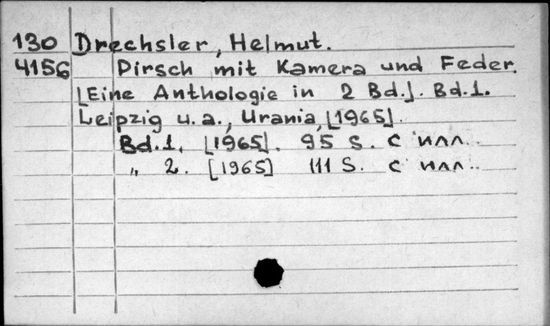 130 Drechsler, Helmut.
4156 Pirsch mit Kamera und Feder.
[Eine Anthologie in 2 Bd.]. Bd.1.
Leipzig u.a., Urania, [1965].
Bd.1. [1965]. 95 S. с илл..
„ 2. [1965] 111 S. с илл..